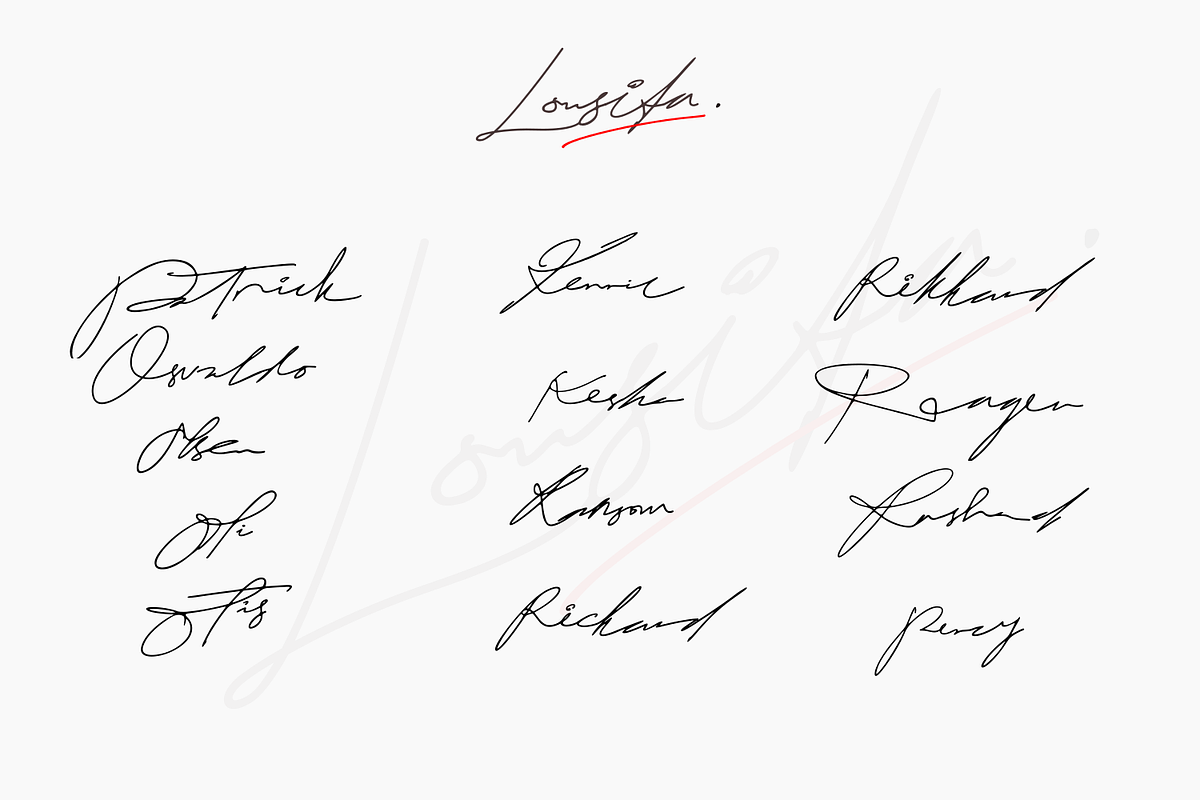 Lousita.
Patrick
Osvaldo
Olsen
Oti
Otis
Kenric
Kesha
Ransom
Richard
Rikhard
Raagen
Rashad
Percy